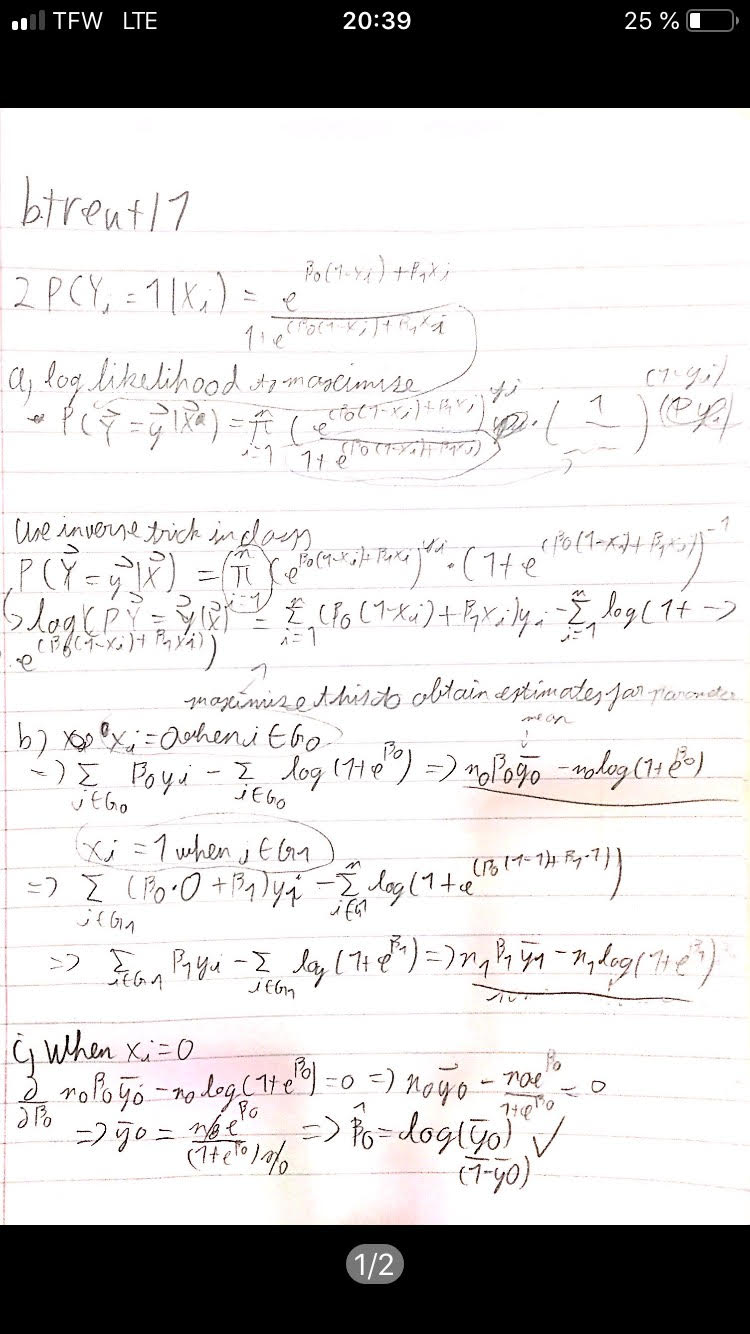 TFW LTE 20:39 25 %
btrent17
2 P(Y_i = 1 | X_i) = e^(β0(1-x_i)+β1x_i) / 1+e^(β0(1-x_i)+β1x_i)
a, log likelihood to maximise
P(Y⃗ = y⃗ | X⃗) = π_{i=1}^n (e^(β0(1-x_i)+β1x_i) / 1+e^(β0(1-x_i)+β1x_i))^{y_i} · (1 / )^{(1-y_i)}
Use inverse trick in class
P(Y⃗ = y⃗ | X⃗) = (π_{i=1}^n (e^{β0(1-x_i)+β1x_i})^{y_i} · (1+e^{(β0(1-x_i)+β1x_i)})^{-1}
log(P Y⃗ = y⃗ | X⃗) = Σ_{i=1}^n (β0(1-x_i)+β1x_i)y_i - Σ_{i=1}^n log(1+ →
e^{(β0(1-x_i)+β1x_i)})
maximise this to obtain estimates for parameter
mean
b) x_i = 0 when i ∈ G0
=) Σ_{i∈G0} β0y_i - Σ_{i∈G0} log(1+e^{β0}) =) n0β0ȳ0 - n0log(1+e^{β0})
x_i = 1 when i ∈ G1
=) Σ_{i∈G1} (β0·0+β1)y_i - Σ_{i∈G1}^n log(1+e^{(β0(1-1)+β1·1)})
=) Σ_{i∈G1} β1y_i - Σ_{i∈G1} log(1+e^{β1}) =) n1β1ȳ1 - n1log(1+e^{β1})
c) When x_i = 0
∂/∂β0 n0β0ȳ0 - n0log(1+e^{β0}) = 0 =) n0ȳ0 - n0e^{β0}/1+e^{β0} = 0
=) ȳ0 = n0e^{β0}/(1+e^{β0})n0 =) β̂0 = log(ȳ0)/(1-ȳ0) ✓
1/2